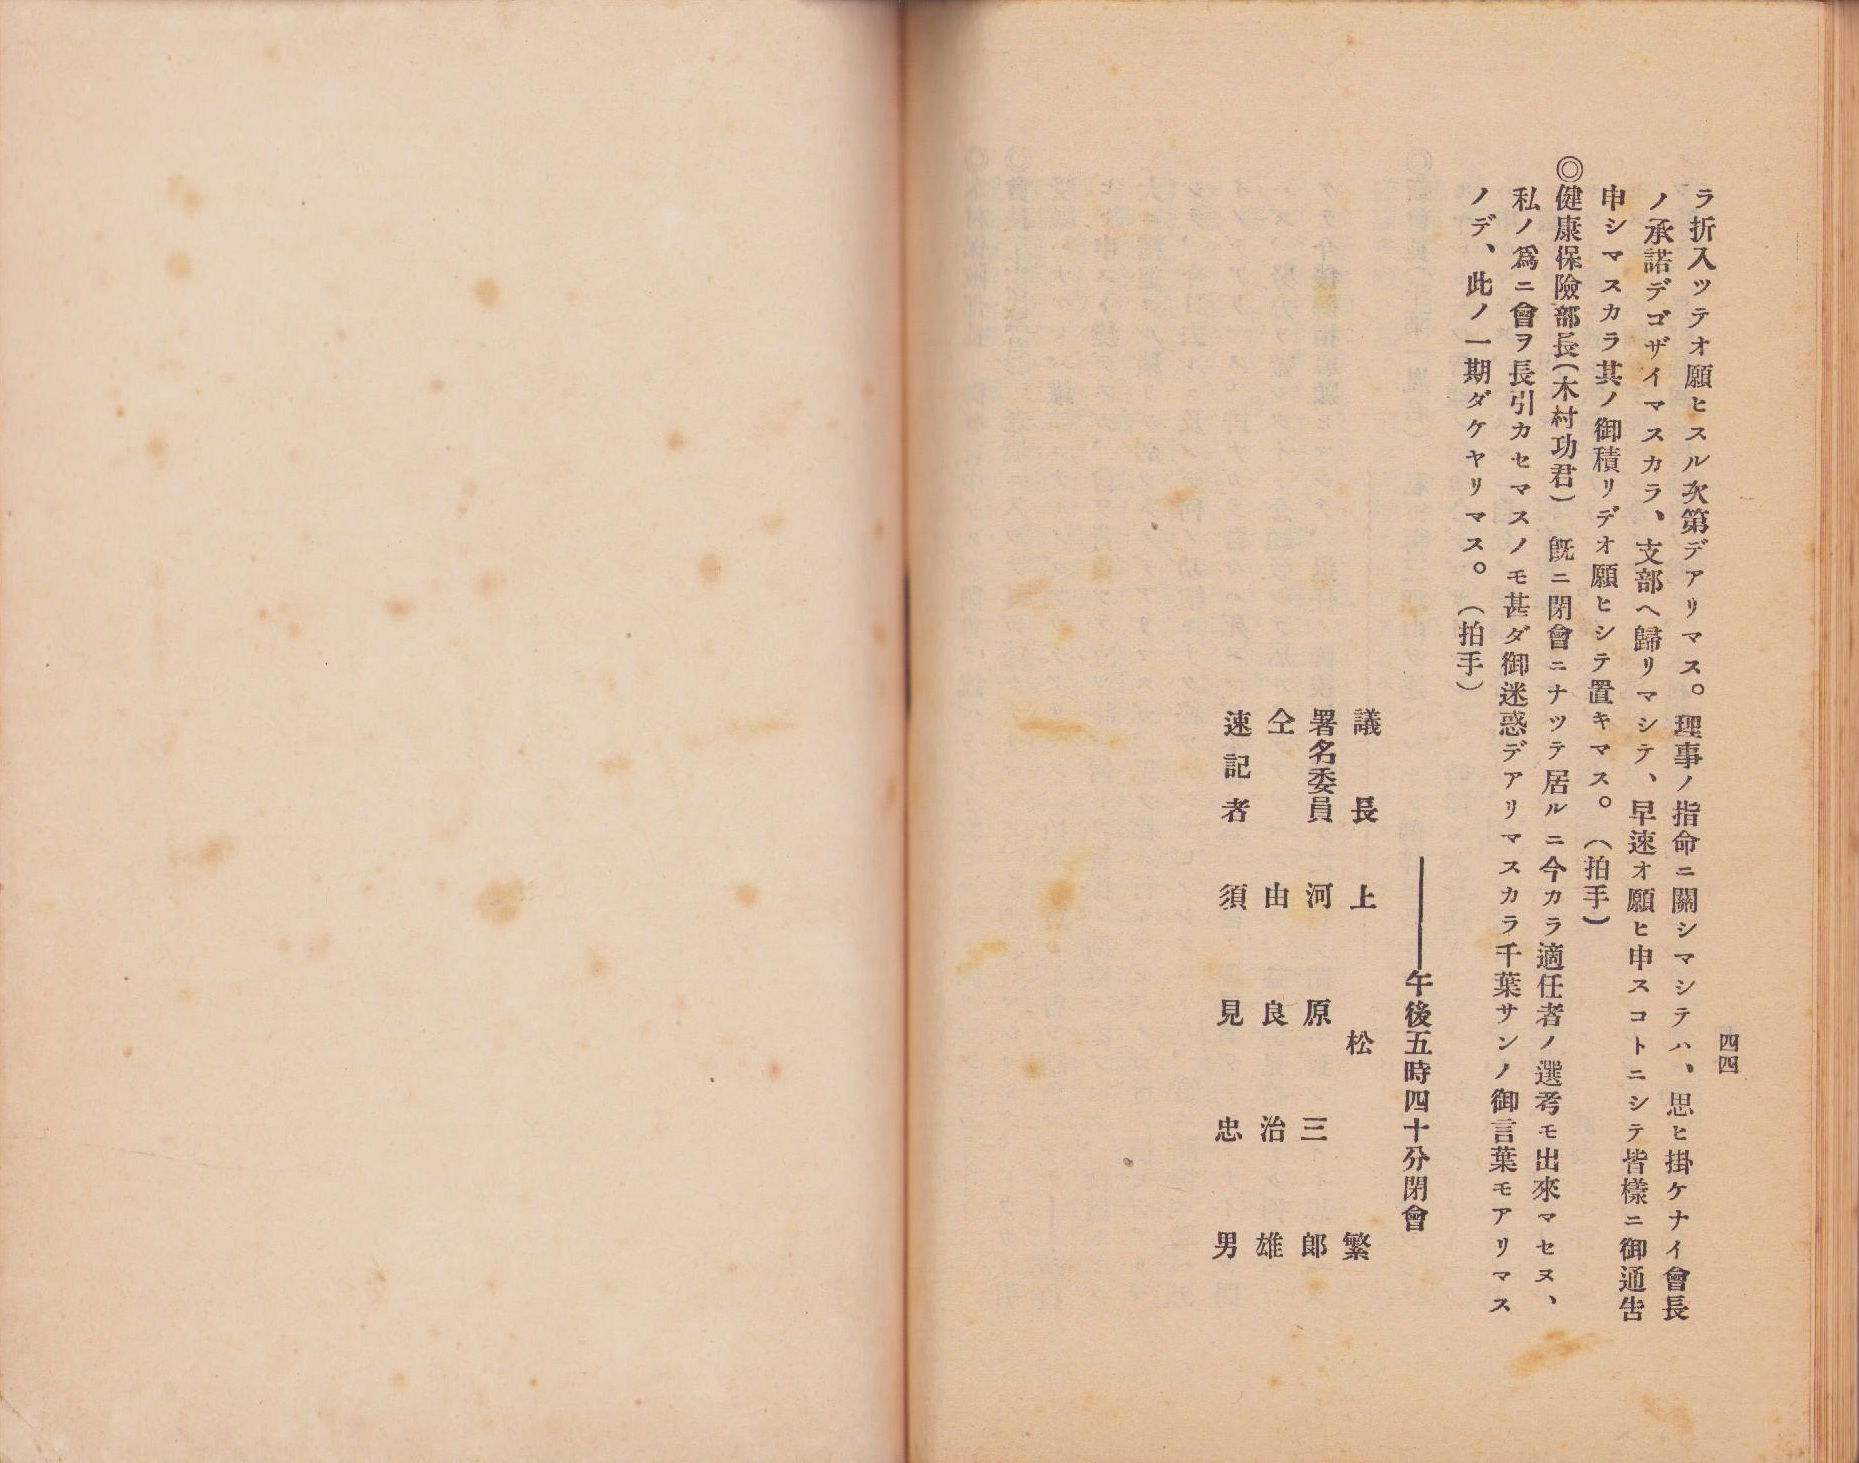 四四
ラ折入ツテオ願ヒスル次第デアリマス。理事ノ指命ニ關シマシテハ、思ヒ掛ケナイ會長
ノ承諾デゴザイマスカラ、支部ヘ歸リマシテ、早速オ願ヒ申スコトニシテ皆樣ニ御通吿
申シマスカラ其ノ御積リデオ願ヒシテ置キマス。（拍手）
◎健康保險部長（木村功君）　既ニ閉會ニナツテ居ルニ今カラ適任者ノ選考モ出來マセヌ、
私ノ爲ニ會ヲ長引カセマスノモ甚ダ御迷惑デアリマスカラ千葉サンノ御言葉モアリマス
ノデ、此ノ一期ダケヤリマス。（拍手）
――午後五時四十分閉會
議長　上松繁
署名委員　河原三郎
仝　由良治雄
速記者　須見忠男